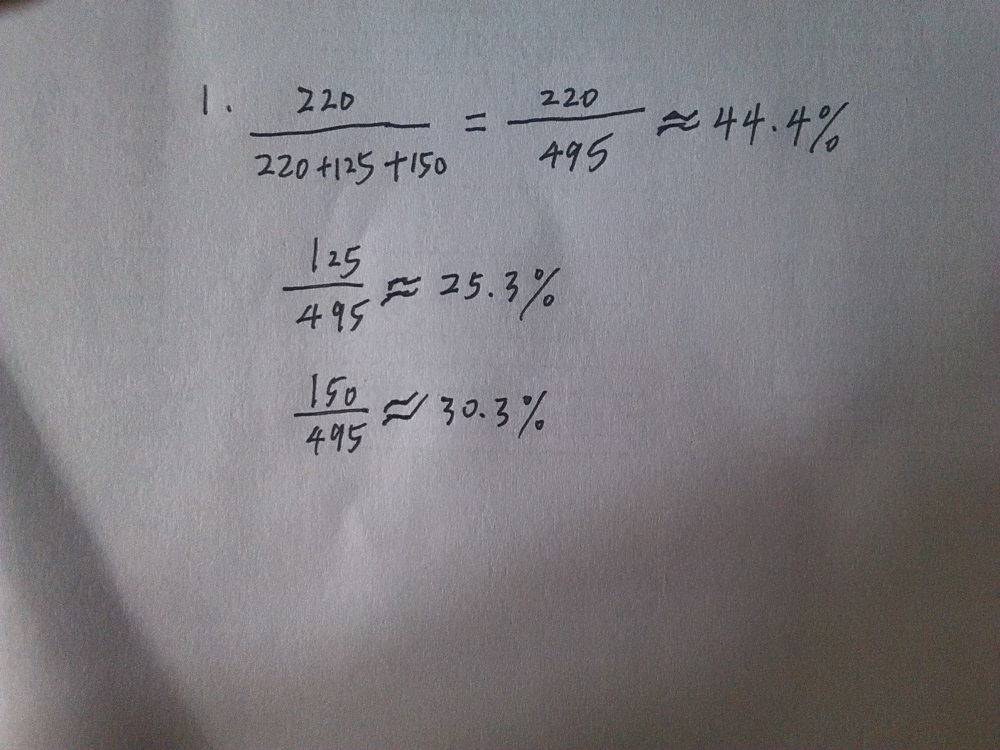 1. 220/(220+125+150) = 220/495 ≈ 44.4%
125/495 ≈ 25.3%
150/495 ≈ 30.3%